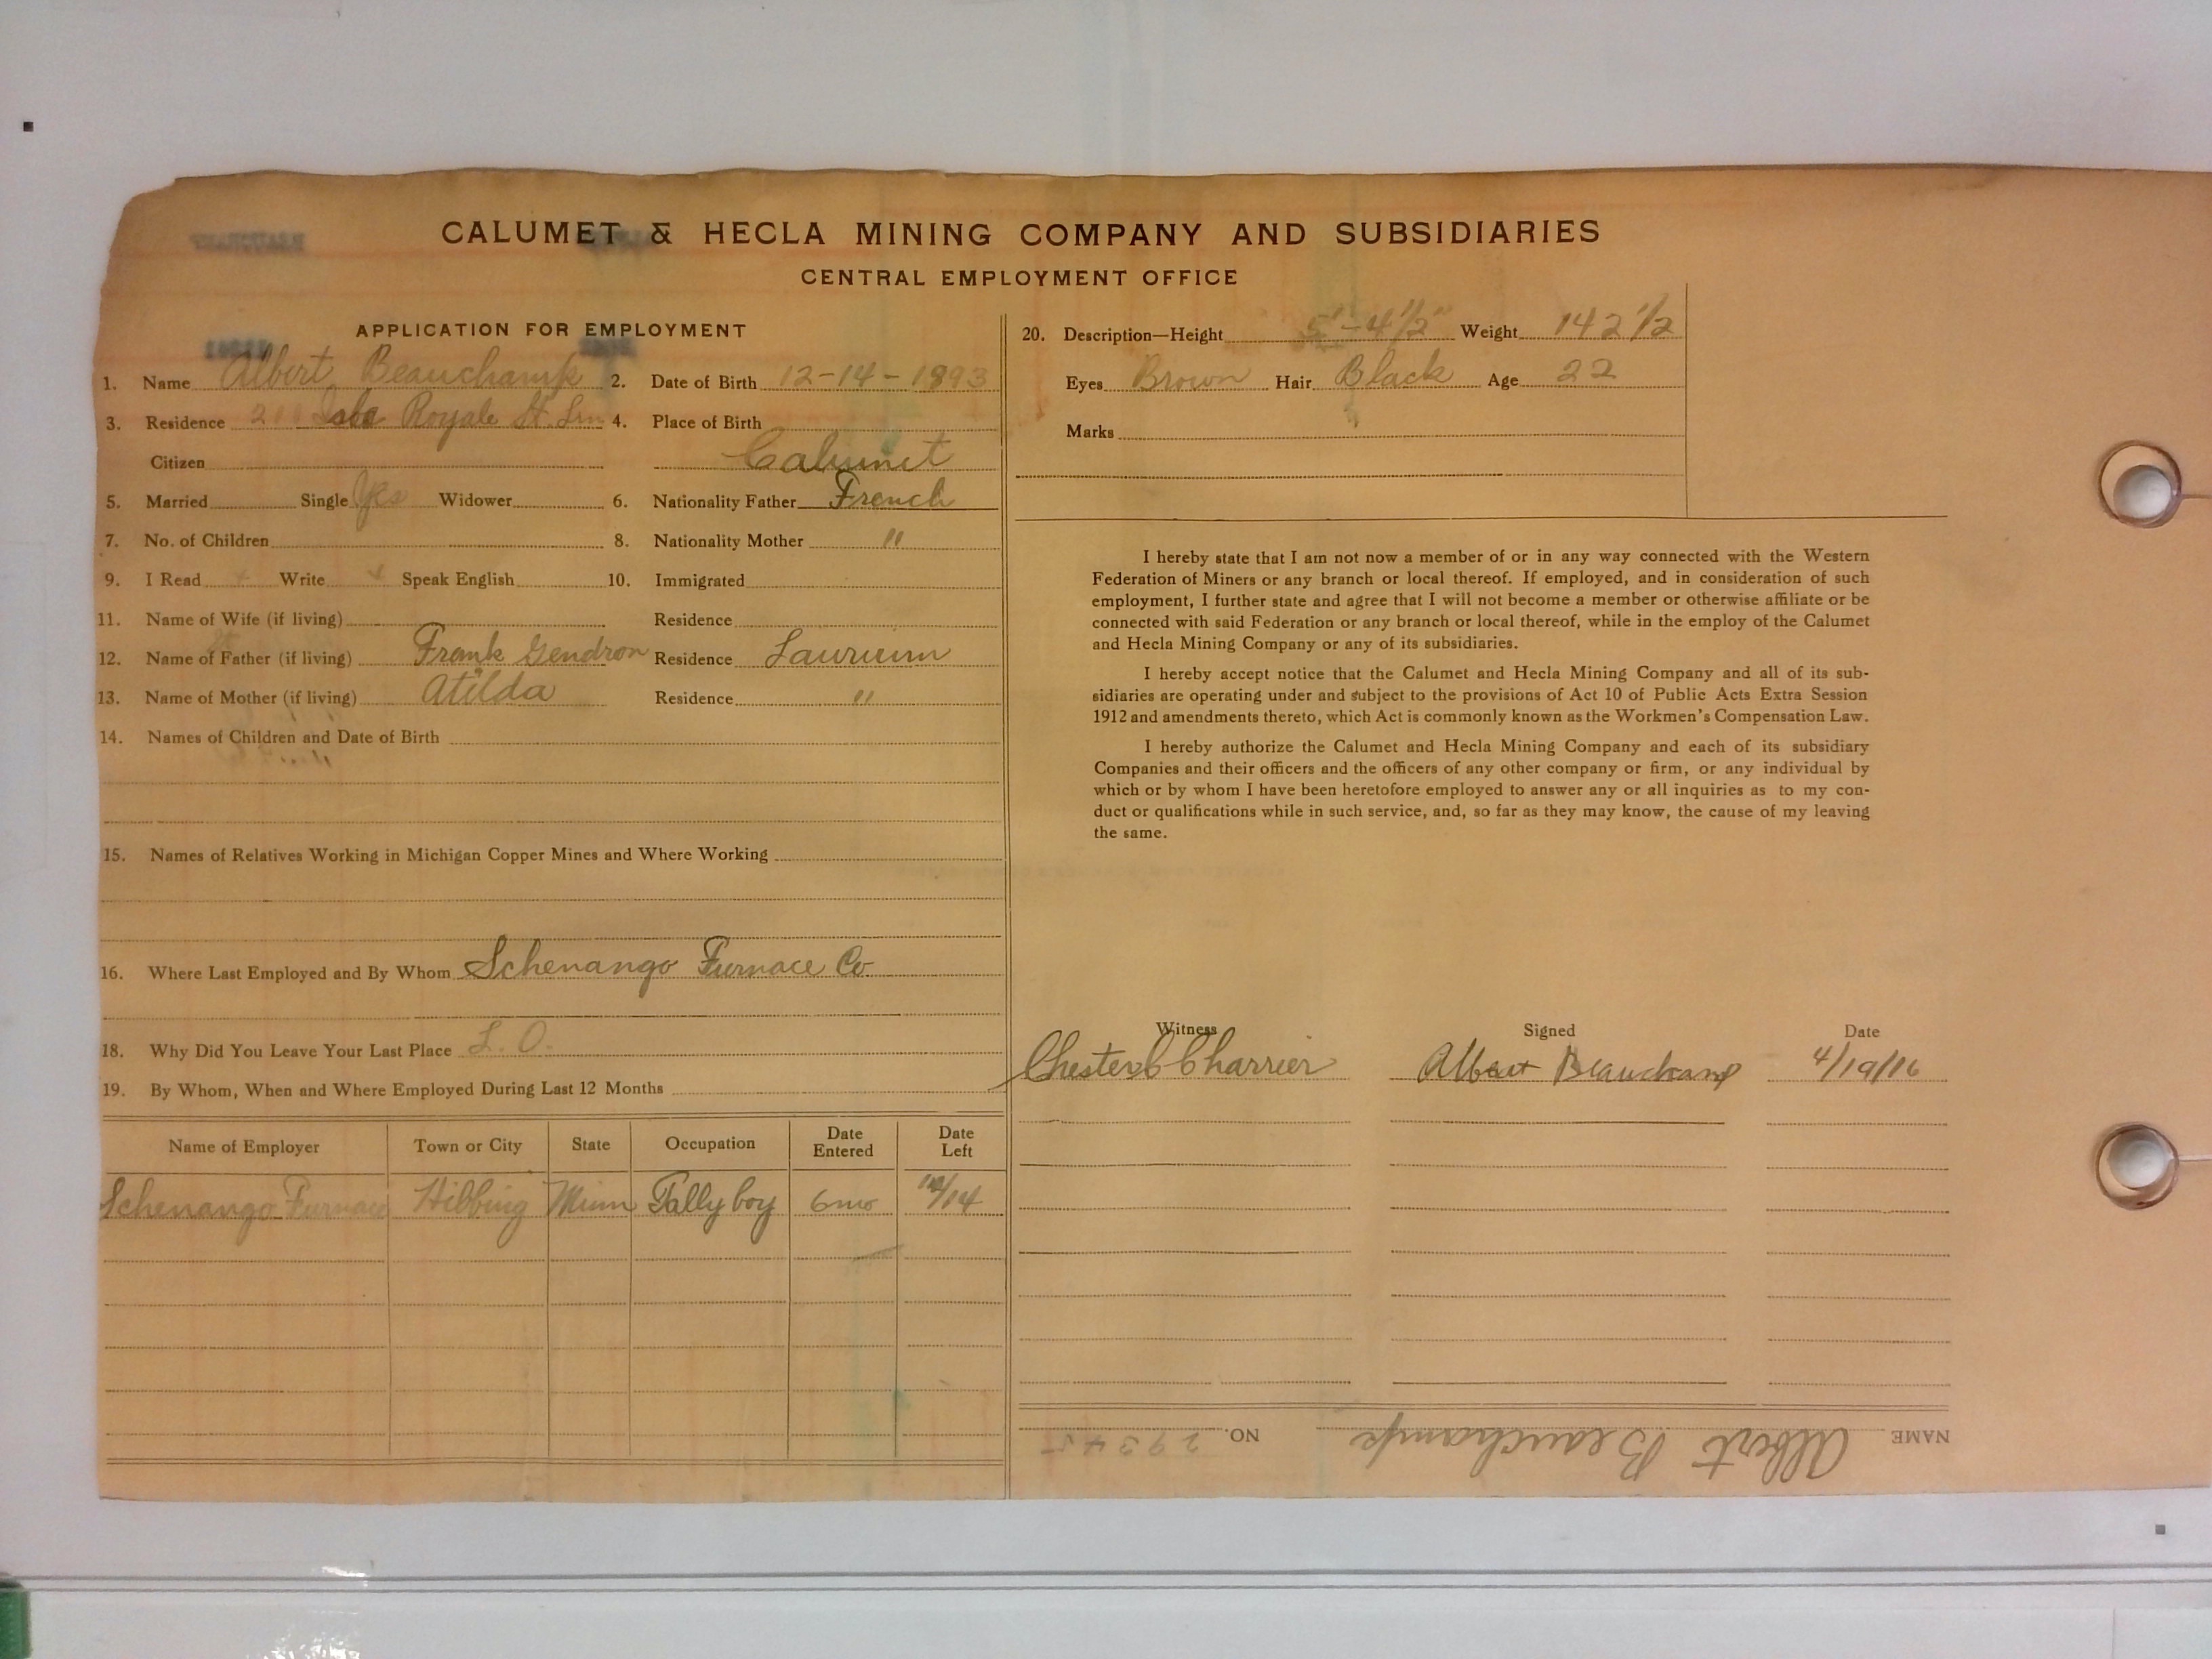 CALUMET & HECLA MINING COMPANY AND SUBSIDIARIES
CENTRAL EMPLOYMENT OFFICE
APPLICATION FOR EMPLOYMENT
1. Name Albert Beauchamp 2. Date of Birth 12-14-1893
3. Residence Isle Royale St. 4. Place of Birth
Citizen Calumet
5. Married Single Yes Widower 6. Nationality Father French
7. No. of Children 8. Nationality Mother "
9. I Read Write Speak English 10. Immigrated
11. Name of Wife (if living) Residence
12. Name of Father (if living) Frank Gendron Residence Laurium
13. Name of Mother (if living) Atilda Residence "
14. Names of Children and Date of Birth
15. Names of Relatives Working in Michigan Copper Mines and Where Working
16. Where Last Employed and By Whom Schenango Furnace Co
18. Why Did You Leave Your Last Place L. O.
19. By Whom, When and Where Employed During Last 12 Months
Name of Employer Town or City State Occupation Date Entered Date Left
Schenango Furnace Hibbing Minn Tally boy 6 mo
20. Description—Height 5'-4 1/2" Weight 142 1/2
Eyes Brown Hair Black Age 22
Marks
I hereby state that I am not now a member of or in any way connected with the Western
Federation of Miners or any branch or local thereof. If employed, and in consideration of such
employment, I further state and agree that I will not become a member or otherwise affiliate or be
connected with said Federation or any branch or local thereof, while in the employ of the Calumet
and Hecla Mining Company or any of its subsidiaries.
I hereby accept notice that the Calumet and Hecla Mining Company and all of its sub-
sidiaries are operating under and subject to the provisions of Act 10 of Public Acts Extra Session
1912 and amendments thereto, which Act is commonly known as the Workmen's Compensation Law.
I hereby authorize the Calumet and Hecla Mining Company and each of its subsidiary
Companies and their officers and the officers of any other company or firm, or any individual by
which or by whom I have been heretofore employed to answer any or all inquiries as to my con-
duct or qualifications while in such service, and, so far as they may know, the cause of my leaving
the same.
Witness Signed Date
Chester C Charrier Albert Beauchamp 4/19/16
NAME Albert Beauchamp NO. 29345